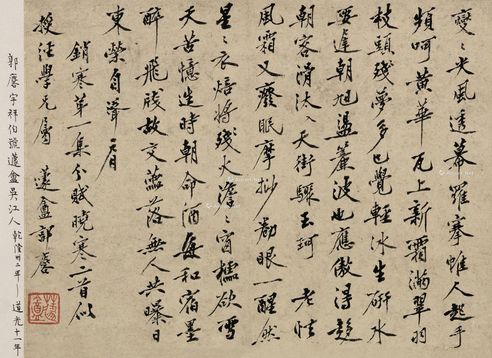 尖風透幕羅搴帷人起手
頻呵黃華瓦上新霜滿翠羽
枝頭殘夢多已覺輕冰生研水
遲朝旭盪簾波也應傲得趨
朝客滑汰天街驟玉珂 老怯
風霜又廢眠摩挱勸眼一醒然
星星衣焙將殘火澹澹窗櫺欲雪
天苦憶生時朝命酒每和宿墨
醉飛牋故交落無人共曝日
東榮自聳肩
銷寒第一集分賦曉寒二首似
授經學兄屬 蘧盦郭麐
郭麐字祥伯號蘧盦吳江人 乾隆卅二年－道光十一年